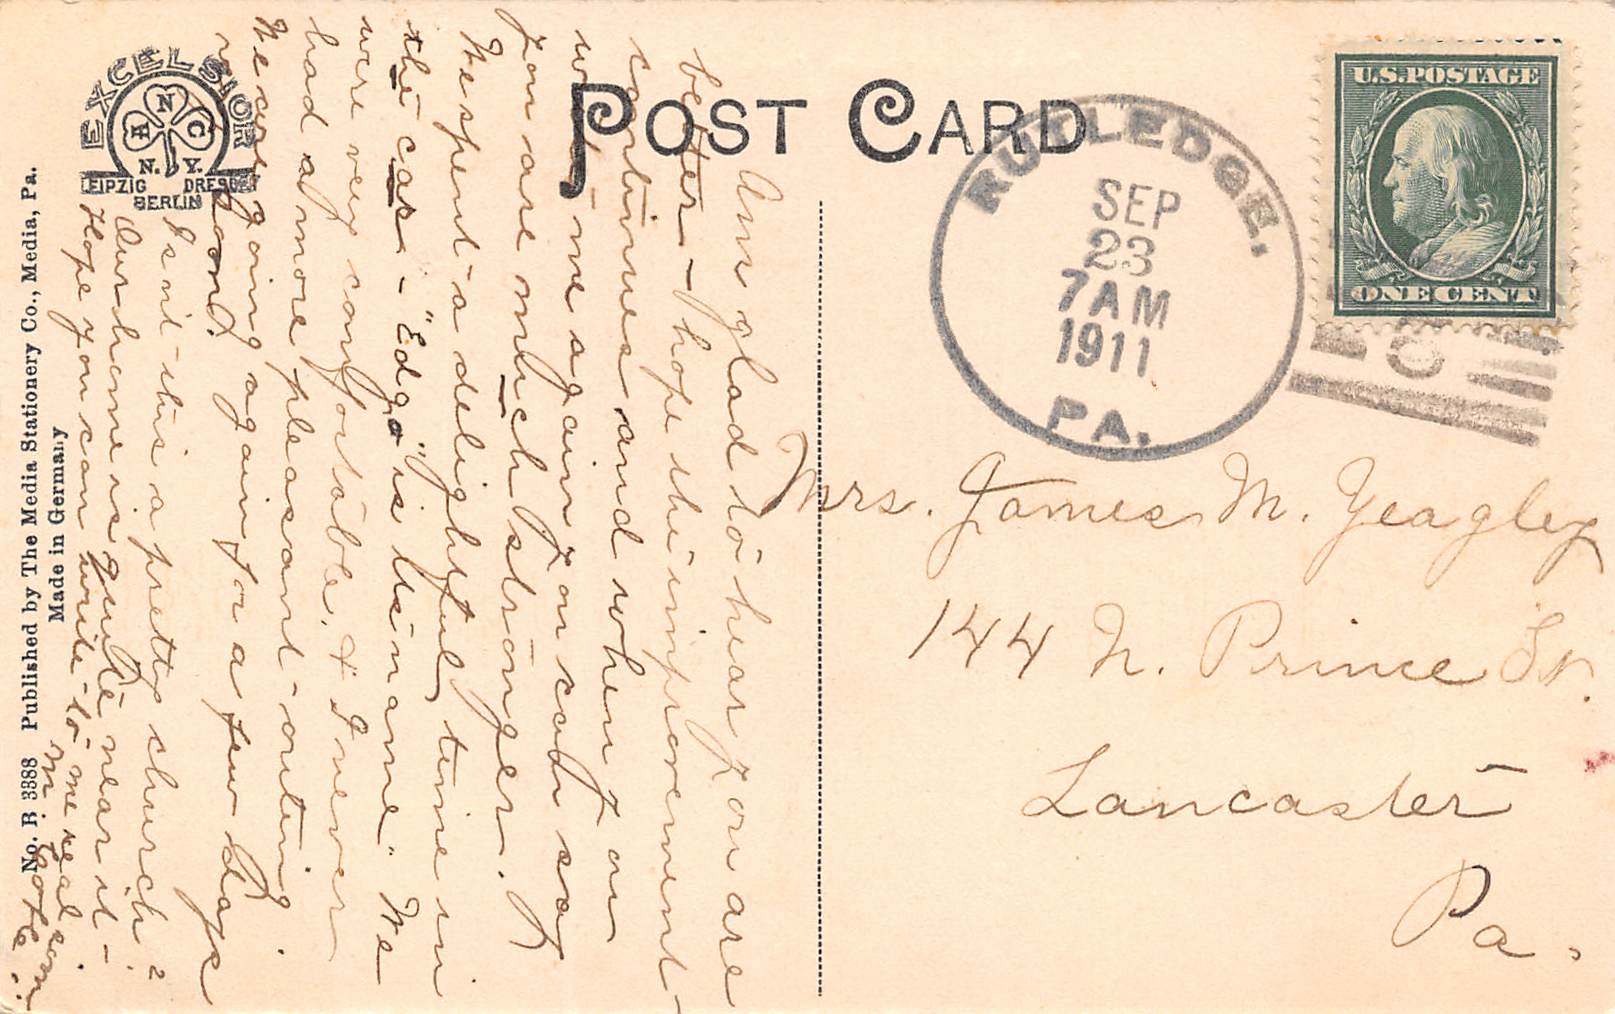 EXCELSIOR
H N C
N. Y.
LEIPZIG DRESDEN
BERLIN
POST CARD
U.S. POSTAGE
ONE CENT
RUTLEDGE,
SEP
23
7 AM
1911
PA.
No. B 3388 Published by The Media Stationery Co., Media, Pa.
Made in Germany
Am glad to hear you are
better - hope the improvement
continues and when you
write me again you can say
you are much stronger.
We spent a delightful time in
the cars - "Edgo" is its name. We
were very comfortable, & I never
had a more pleasant outing.
We are going again for a few days
soon.
Isn't this a pretty church?
Our home is quite near it -
Hope you can write to me real soon
M.
Mrs. James M. Yeagley
144 N. Prince St.
Lancaster
Pa.